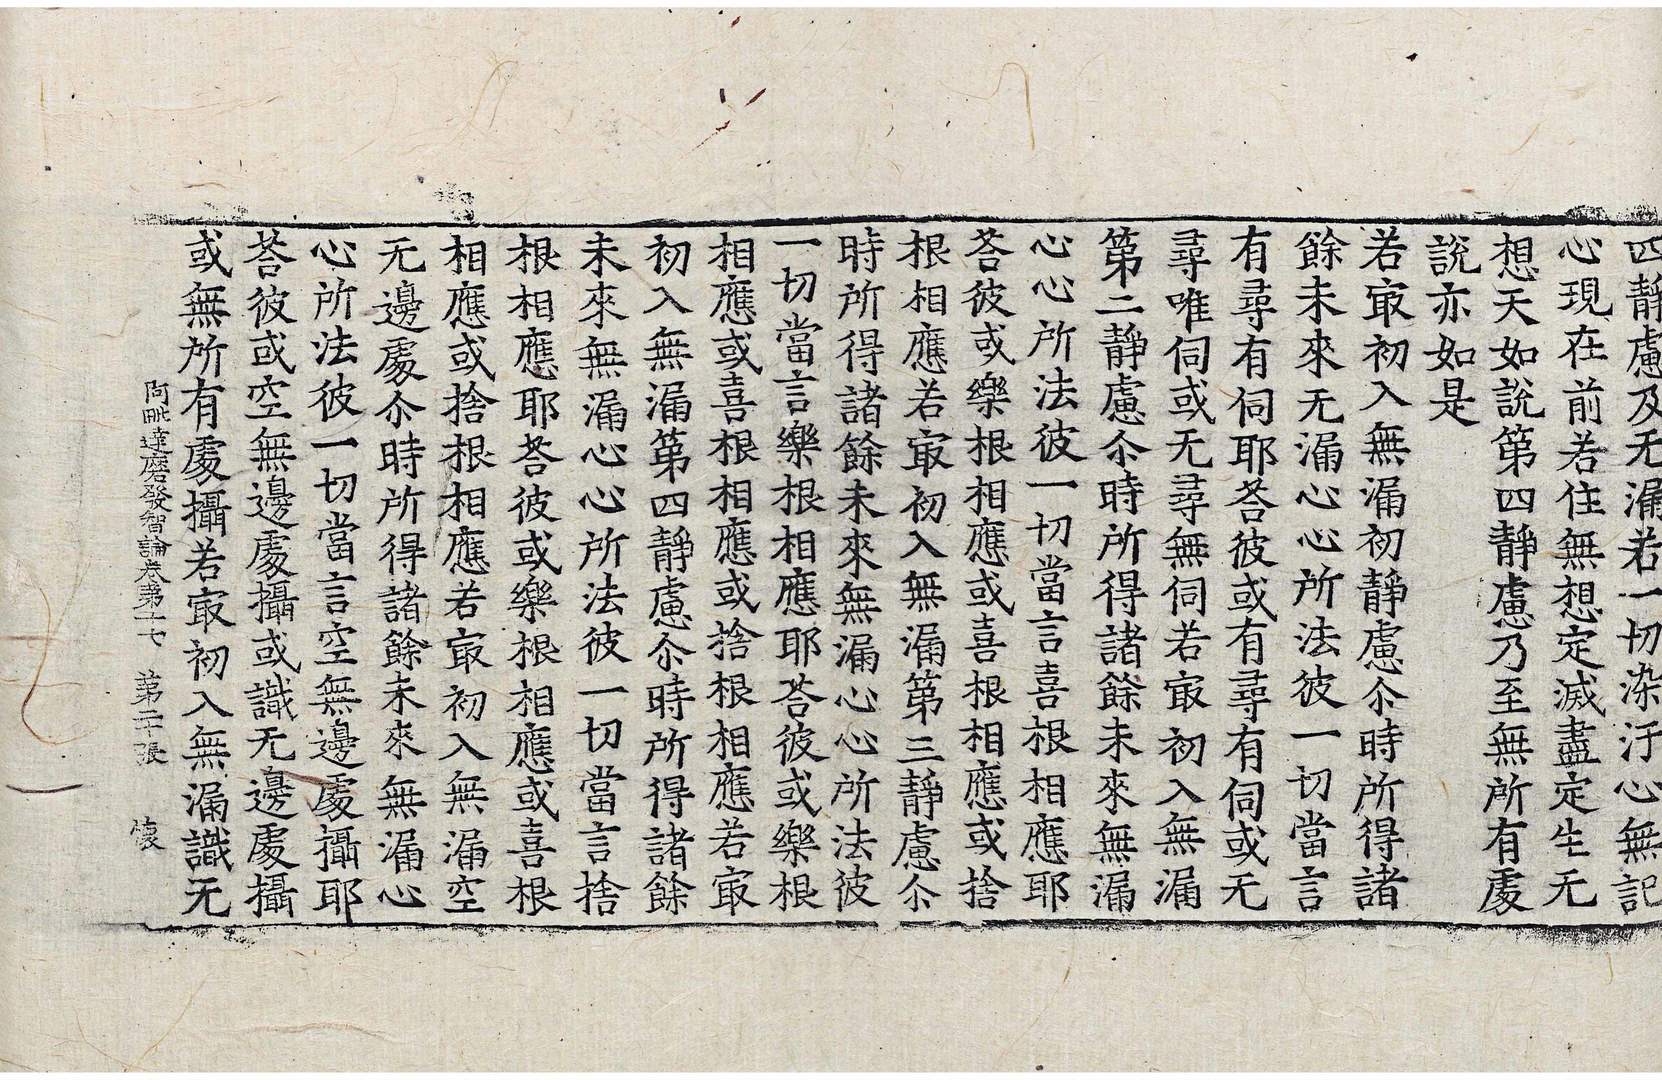 四静慮及无漏若一切染汙心無記
心現在前若住無想定滅盡定生无
想天如説第四静慮乃至無所有處
説亦如是
若㝡初入無漏初静慮尒時所得諸
餘未來无漏心心所法彼一切當言
有尋有伺耶荅彼或有尋有伺或无
尋唯伺或无尋無伺若㝡初入無漏
第二静慮尒時所得諸餘未來無漏
心心所法彼一切當言喜根相應耶
荅彼或樂根相應或喜根相應或捨
根相應若㝡初入無漏第三静慮尒
時所得諸餘未來無漏心心所法彼
一切當言樂根相應耶荅彼或樂根
相應或喜根相應或捨根相應若㝡
初入無漏第四静慮尒時所得諸餘
未來無漏心心所法彼一切當言捨
根相應耶荅彼或樂根相應或喜根
相應或捨根相應若㝡初入無漏空
无邊處尒時所得諸餘未來無漏心
心所法彼一切當言空無邊處攝耶
荅彼或空無邊處攝或識无邊處攝
或無所有處攝若㝡初入無漏識无
阿毗達磨發智論卷第十七 第二十張 懷